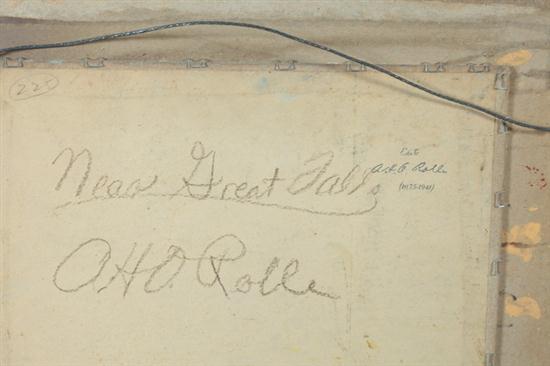 225
Near Great Falls
Est.
A.H.O. Rolle
(1875-1941)
A.H.O. Rolle